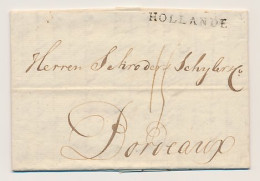 HOLLANDE
Herren Schroder Schyler & Co
Bordeaux